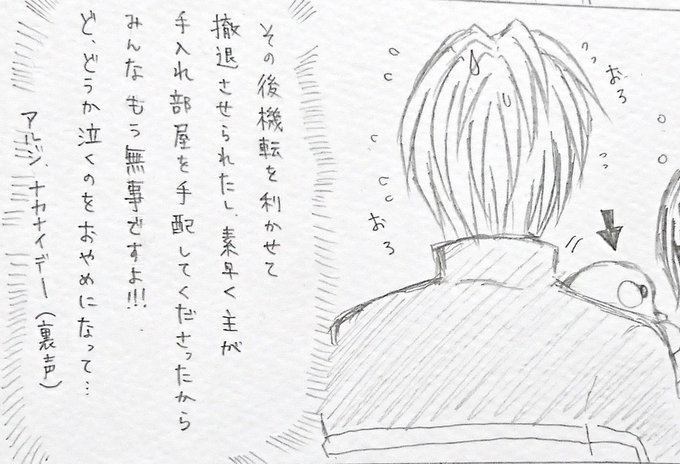 おろ
おろ
その後機転を利かせて
撤退させられたし、素早く主が
手入れ部屋を手配してくださったから
みんなもう無事ですよ!!!
ど、どうか泣くのをおやめになって…
アルジ、ナカナイデー(裏声)